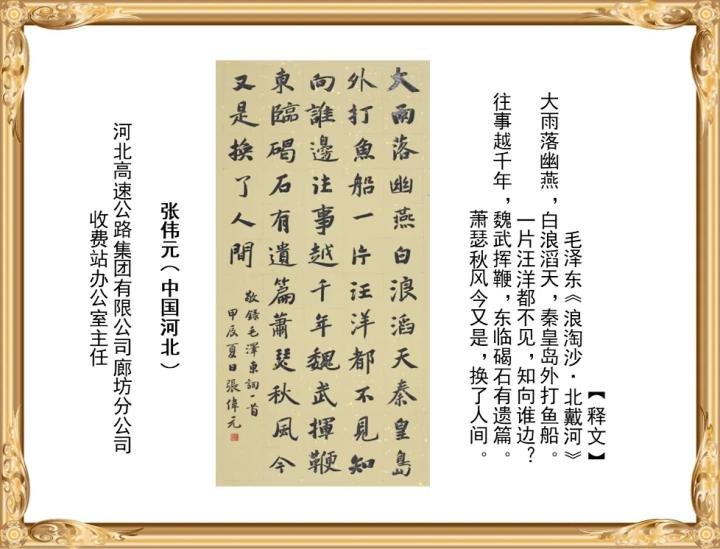 【释文】
毛泽东《浪淘沙·北戴河》
大雨落幽燕，白浪滔天，秦皇岛外打鱼船。
一片汪洋都不见，知向谁边？
往事越千年，魏武挥鞭，东临碣石有遗篇。
萧瑟秋风今又是，换了人间。
大雨落幽燕白浪滔天秦皇島
外打魚船一片汪洋都不見知
向誰邊往事越千年魏武揮鞭
東臨碣石有遺篇蕭瑟秋風今
又是換了人間
敬錄毛澤東詞一首
甲辰夏日張偉元
张伟元（中国河北）
河北高速公路集团有限公司廊坊分公司
收费站办公室主任